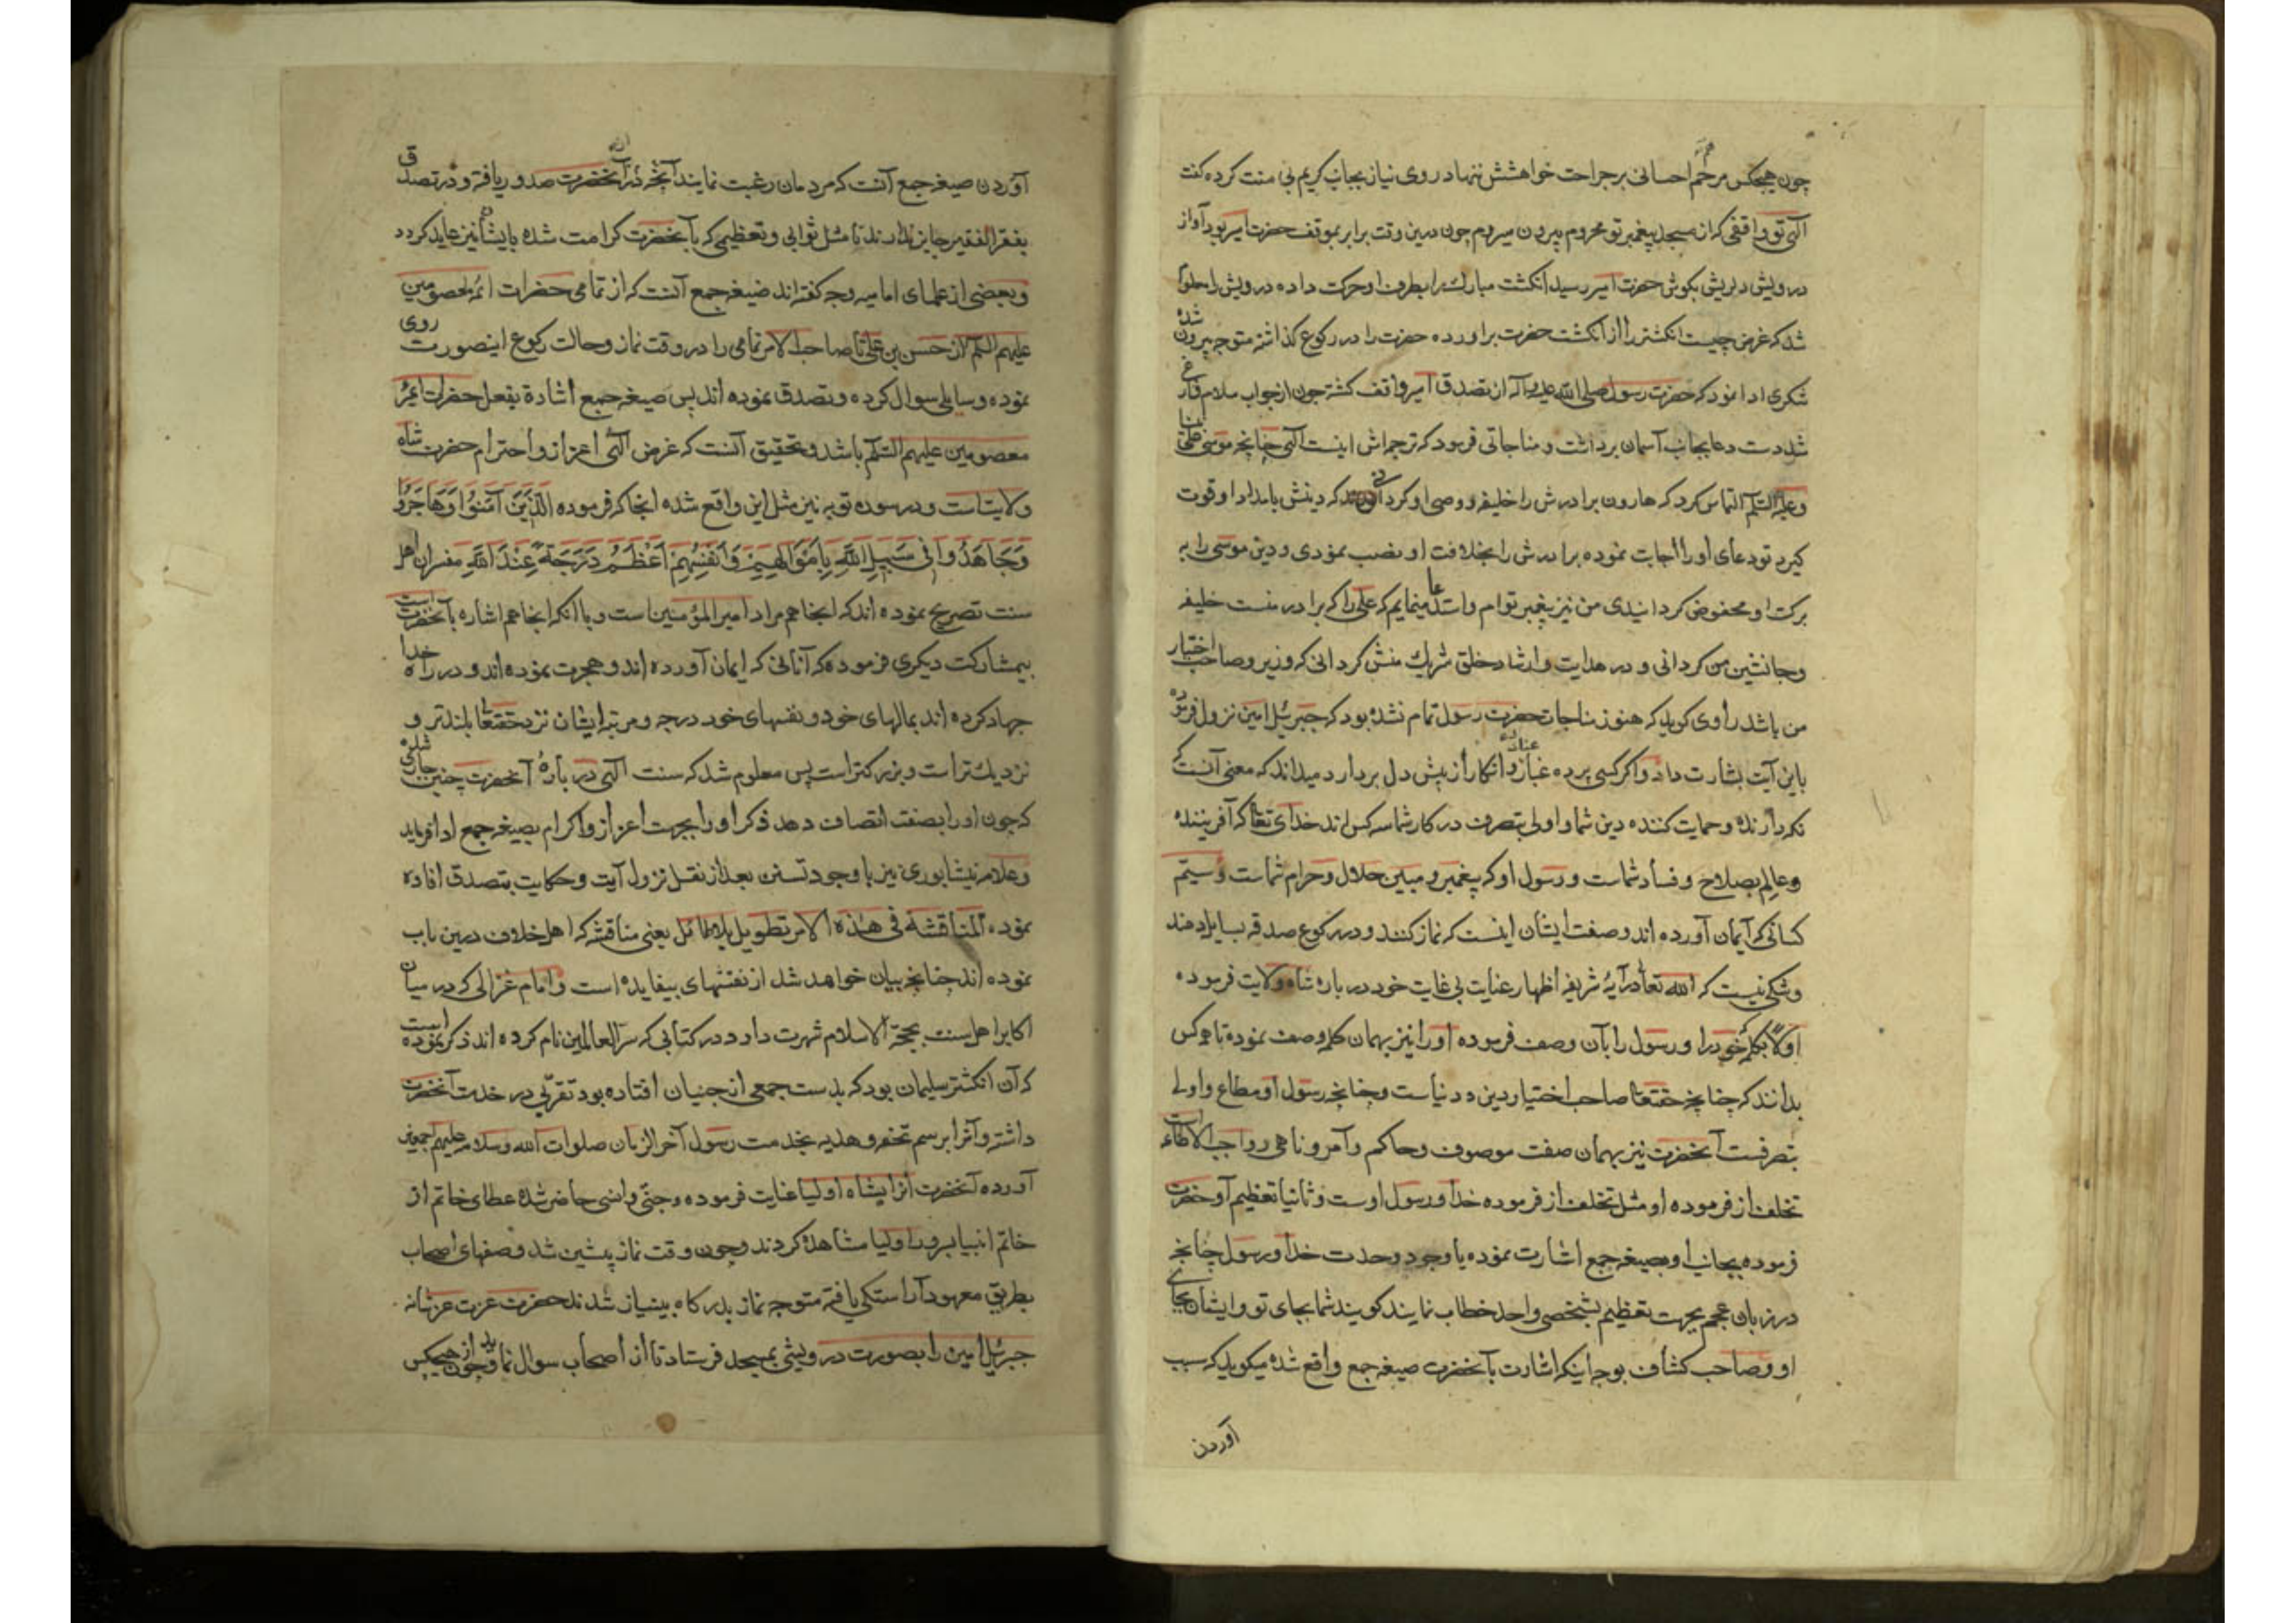 چون هیچکس مرحم احسانی بر جراحت خواهشش ننهاد روی نیاز بجانب کریم بی منت کرده کفت
الهی تو واقفی که از مسجد پیغمبر تو محروم بیرون میروم چون درین وقت برابر بموقف حضرت امیر بود آواز
درویش دلریش بکوش حضرت امیر رسید انکشت مبارک را بطرف او حرکت داده درویش را معلوم
شد که غرض چیست انکشتر را از انکشت حضرت براورده حضرت را در رکوع کذاشته متوجه بیرون شده
شکری ادا نمود که حضرت رسول صلی الله علیه وآله از تصدق امیر واقف کشته چون از جواب سلام فارغ
شد دست دعا بجانب آسمان برداشت و مناجاتی فرمود که ترجمه اش اینست الهی چنانچه موسی علی نبینا
وعلیه السلم التماس کرد که هارون برادرش را خلیفه و وصی او کردانی که دینش بامداد او قوت
کیرد تو دعای او را اجابت نموده برادرش را بخلافت او نصب نمودی و دین موسی را به
برکت او محفوض کردانیدی من نیز پیغمبر توام واستدعا مینمایم که علی را که برادر منست خلیفه
وجانشین من کردانی و در هدایت وارشاد خلق شریک منش کردانی که وزیر وصاحب اختیار
من باشد راوی کوید که هنوز مناجات حضرت رسول تمام نشده بود که جبرئیل امین نزول فرموده
باین آیت بشارت داد واکر کسی پرده عناد وانکار از پیش دل بردارد میداند که معنی آنست که
نکه دارنده وحمایت کننده دین شما واولی بتصرف در کار شما سه کس اند خدای تعالی که آفریننده
وعالم بصلاح وفساد شماست ورسول او که پیغمبر ومبین حلال وحرام شماست وسیتم
کسانی که آیمان آورده اند وصفت ایشان اینست که نماز کنند ودر رکوع صدقه بسایل دهند
وشکی نیست که الله تعالی در آیهٔ شریفه اظهار عنایت بی غایت خود در باره شاه ولایت فرموده
اولاً بکلمهٔ که خود را ورسول را بآن وصف فرموده او را نیز بهمان کلمه وصف نموده تا همه کس
بدانند که چنانچه حقتعالی صاحب اختیار دین و دنیاست وچنانچه رسول او مطاع واولی
بتصرفست آنحضرت نیز بهمان صفت موصوف وحاکم وآمر وناهی و واجب الاطاعه است
تخلف از فرموده او مثل تخلف از فرموده خدا ورسول اوست وثانیا تعظیم آو حضرت
فرموده بجانب او بصیغه جمع اشارت نموده یا وجود وحدت خدا ورسول چنانچه
در زبان عجم بجهت تعظیم بشخصی واحد خطاب نمایند کویند شما بجای تو وایشان بجای
او وصاحب کشاف بوجه اینکه اشارت بآنحضرت صیغه جمع واقع شده میکوید که سبب
آوردن
آوردن صیغه جمع آنست که مردمان رغبت نمایند آنچه از آنحضرت صدور یافته و در تصدق
بفقرا الفقیر جایز ندارند تا مثل ثوابی وتعظیمی که بآنحضرت کرامت شده بایشان نیز عاید کردد
وبعضی از علمای امامیه وجه کفته اند صیغه جمع آنست که از تمامی حضرات ائمه معصومین
علیهم السلم از حسن بن علی تا صاحب الامر تمامی را در وقت نماز وحالت رکوع اینصورت روی
نموده وسایلی سوال کرده وتصدق نموده اند پس صیغه جمع اشاره بفعل حضرات ائمهٔ
معصومین علیهم السلم باشد وتحقیق آنست که غرض الهی اعزاز واحترام حضرت شاه
ولایت است ودر سوره توبه نیز مثل این واقع شده انجا که فرموده الَّذِینَ آمَنُوا وَهَاجَرُوا
وَجَاهَدُوا فِی سَبِیلِ اللَّهِ بِأَمْوَالِهِمْ وَأَنْفُسِهِمْ أَعْظَمُ دَرَجَةً عِنْدَ اللَّهِ مفسران اهل
سنت تصریح نموده اند که اینجا هم مراد امیر المؤمنین است وبا انکه اینجا هم اشاره بآنحضرت است
بیمشارکت دیکری فرموده که آنانی که ایمان آورده اند وهجرت نموده اند ودر راه خدا
جهاد کرده اند بمالهای خود ونفسهای خود درجه ومرتبه ایشان نزد حقتعالی بلندتر و
نزدیک تر است وبزرکتر است پس معلوم شد که سنت الهی در بارهٔ آنحضرت چنین جاری شده
که چون او را بصفت اتصاف دهد ذکر او را بجهت اعزاز واکرام بصیغه جمع ادا فرماید
وعلامه نیشابوری نیز با وجود تسنن بعد از نقل نزول آیت وحکایت بتصدق افاده
نموده المناقشة فی هذه الامر تطویل بلا طائل یعنی مناقشه که اهل خلاف درین باب
نموده اند چنانچه بیان خواهد شد از نقشهای بیفایده است وامام غزالی که در میان
اکابر اهل سنت بحجة الاسلام شهرت دارد در کتابی که سر العالمین نام کرده اند ذکر نموده است
که آن انکشتر سلیمان بود که بدست جمعی از جنیان افتاده بود تقربی در خدمت آنحضرت
داشته وآنرا برسم تحفه وهدیه بخدمت رسول آخر الزمان صلوات الله وسلامه علیهم اجمعین
آورده آنحضرت آنرا بشاه اولیا عنایت فرموده وجنّی وانسی حاضر شده عطای خاتم از
خاتم انبیا بسرور اولیا مشاهده کردند وچون وقت نماز پیشین شد وصفهای اصحاب
بطریق معهود آراستکی یافته متوجه نماز بدرکاه بینیاز شدند حضرت عزت عز شانه
جبرئیل امین را بصورت درویشی بمسجد فرستاد تا از اصحاب سوال نماید وچون از هیچکس